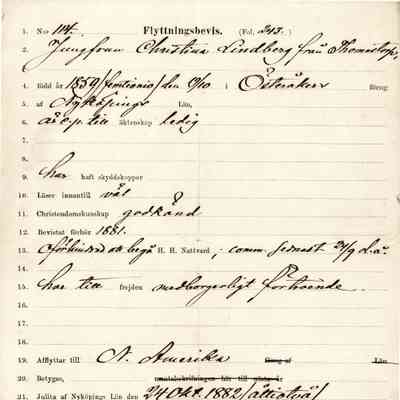 1. N:o 114. Flyttningsbevis. (Fol. 243.)
2. Jungfrun Christina Lindberg från Thomastorp,
3.
4. född år 1859 /femtionio/ den 9/10 i Österåker förcng:
5. af Nyköpings Län,
6. är o.p. till äktenskap ledig
7.
8.
9. har haft skyddskoppor
10. Läser innantill väl
11. Christendomskunskap godkänd
12. Bevistat förhör 1881.
13. oförhindrad att begå H. H. Nattvard; comm. sednast 24/9 d.å.
14.
15. har till frejden medborgerligt förtroende.
16.
17.
18.
19. Afflyttar till N. Amerika förcng af Län
20. Betygas,
21. Julita af Nyköpings Län den 24 Okt. 1882 /åttiotvå/